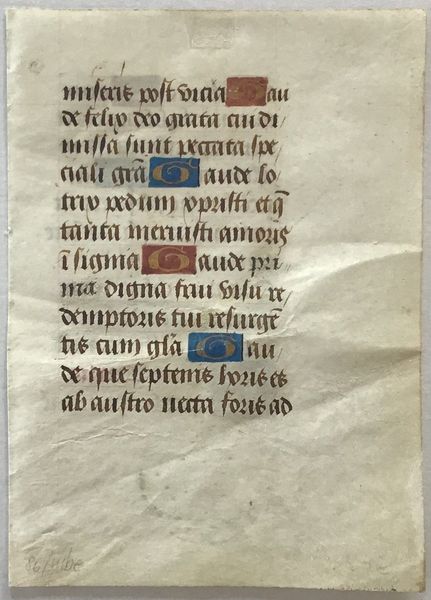 miseris post vitia Gau
de felix deo grata cui di/
missa sunt peccata spe/
ciali grã Gaude lo/
trix pedum xpristi et q̃
tanta meruisti amoris
ĩsignia Gaude pri/
ma digna frui visu re/
demptoris tui resurgẽ/
tis cum glã Gau/
de que septenis horis es
ab austro vecta foris ad